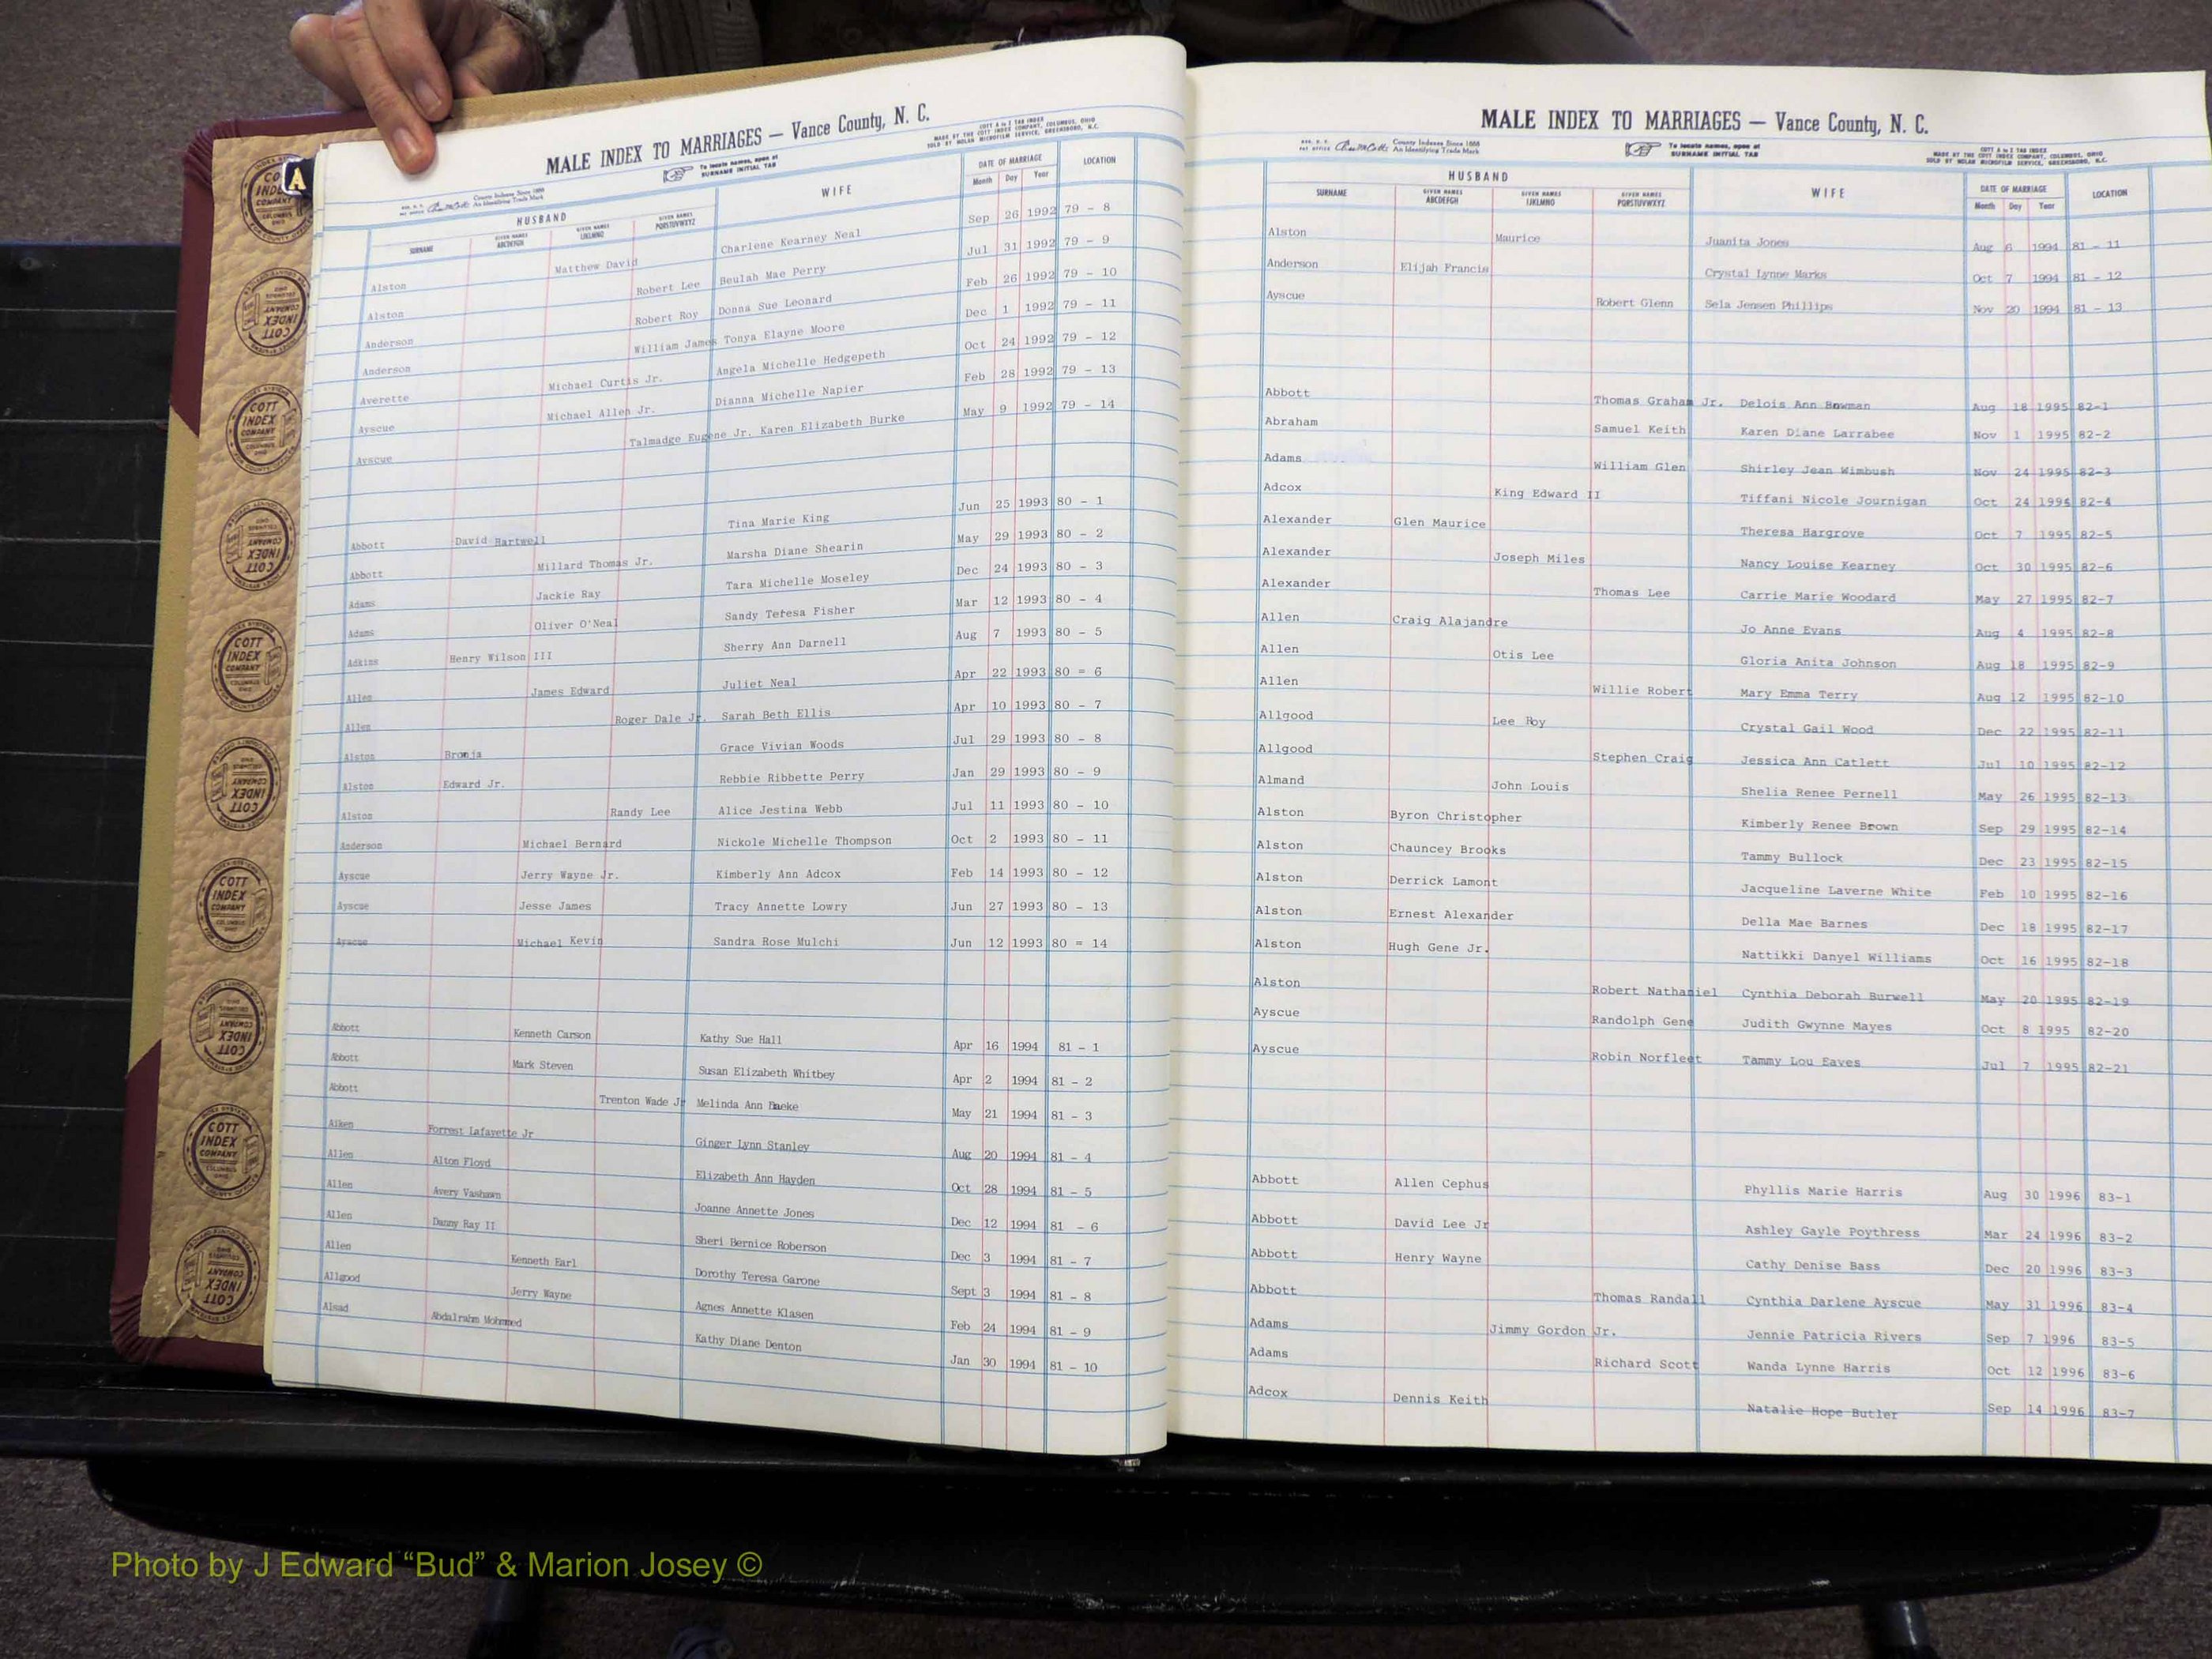 A
MALE INDEX TO MARRIAGES — Vance County, N. C.
COTT A to Z TAB INDEX
MADE BY THE COTT INDEX COMPANY, COLUMBUS, OHIO
SOLD BY NOLAN MICROFILM SERVICE, GREENSBORO, N.C.
County Indexes Since 1888
An Identifying Trade Mark
To locate names, open at
SURNAME INITIAL TAB
HUSBAND WIFE DATE OF MARRIAGE LOCATION
SURNAME GIVEN NAMES ABCDEFGH GIVEN NAMES IJKLMNO GIVEN NAMES PQRSTUVWXYZ Month Day Year
Alston Matthew David Charlene Kearney Neal Sep 26 1992 79 - 8
Alston Robert Lee Beulah Mae Perry Jul 31 1992 79 - 9
Anderson Robert Roy Donna Sue Leonard Feb 26 1992 79 - 10
Anderson William James Tonya Elayne Moore Dec 1 1992 79 - 11
Averette Michael Curtis Jr. Angela Michelle Hedgepeth Oct 24 1992 79 - 12
Ayscue Michael Allen Jr. Dianna Michelle Napier Feb 28 1992 79 - 13
Ayscue Talmadge Eugene Jr. Karen Elizabeth Burke May 9 1992 79 - 14
Abbott David Hartwell Tina Marie King Jun 25 1993 80 - 1
Abbott Millard Thomas Jr. Marsha Diane Shearin May 29 1993 80 - 2
Adams Jackie Ray Tara Michelle Moseley Dec 24 1993 80 - 3
Adams Oliver O'Neal Sandy Teresa Fisher Mar 12 1993 80 - 4
Adkins Henry Wilson III Sherry Ann Darnell Aug 7 1993 80 - 5
Allen James Edward Juliet Neal Apr 22 1993 80 = 6
Allen Roger Dale Jr. Sarah Beth Ellis Apr 10 1993 80 - 7
Alston Bronja Grace Vivian Woods Jul 29 1993 80 - 8
Alston Edward Jr. Rebbie Ribbette Perry Jan 29 1993 80 - 9
Alston Randy Lee Alice Jestina Webb Jul 11 1993 80 - 10
Anderson Michael Bernard Nickole Michelle Thompson Oct 2 1993 80 - 11
Ayscue Jerry Wayne Jr. Kimberly Ann Adcox Feb 14 1993 80 - 12
Ayscue Jesse James Tracy Annette Lowry Jun 27 1993 80 - 13
Ayscue Michael Kevin Sandra Rose Mulchi Jun 12 1993 80 = 14
Abbott Kenneth Carson Kathy Sue Hall Apr 16 1994 81 - 1
Abbott Mark Steven Susan Elizabeth Whitbey Apr 2 1994 81 - 2
Abbott Trenton Wade Jr Melinda Ann May 21 1994 81 - 3
Aiken Forrest Lafayette Jr Ginger Lynn Stanley Aug 20 1994 81 - 4
Allen Alton Floyd Elizabeth Ann Hayden Oct 28 1994 81 - 5
Allen Avery Vashawn Joanne Annette Jones Dec 12 1994 81 - 6
Allen Danny Ray II Sheri Bernice Roberson Dec 3 1994 81 - 7
Allen Kenneth Earl Dorothy Teresa Garone Sept 3 1994 81 - 8
Allgood Jerry Wayne Agnes Annette Klasen Feb 24 1994 81 - 9
Alsad Abdalrahm Mohmmed Kathy Diane Denton Jan 30 1994 81 - 10
MALE INDEX TO MARRIAGES — Vance County, N. C.
COTT A to Z TAB INDEX
MADE BY THE COTT INDEX COMPANY, COLUMBUS, OHIO
SOLD BY NOLAN MICROFILM SERVICE, GREENSBORO, N.C.
County Indexes Since 1888
An Identifying Trade Mark
To locate names, open at
SURNAME INITIAL TAB
HUSBAND WIFE DATE OF MARRIAGE LOCATION
SURNAME GIVEN NAMES ABCDEFGH GIVEN NAMES IJKLMNO GIVEN NAMES PQRSTUVWXYZ Month Day Year
Alston Maurice Juanita Jones Aug 6 1994 81 - 11
Anderson Elijah Francis Crystal Lynne Marks Oct 7 1994 81 - 12
Ayscue Robert Glenn Sela Jensen Phillips Nov 20 1994 81 - 13
Abbott Thomas Graham Jr. Delois Ann Bowman Aug 18 1995 82-1
Abraham Samuel Keith Karen Diane Larrabee Nov 1 1995 82-2
Adams William Glen Shirley Jean Wimbush Nov 24 1995 82-3
Adcox King Edward II Tiffani Nicole Journigan Oct 24 1995 82-4
Alexander Glen Maurice Theresa Hargrove Oct 7 1995 82-5
Alexander Joseph Miles Nancy Louise Kearney Oct 30 1995 82-6
Alexander Thomas Lee Carrie Marie Woodard May 27 1995 82-7
Allen Craig Alajandre Jo Anne Evans Aug 4 1995 82-8
Allen Otis Lee Gloria Anita Johnson Aug 18 1995 82-9
Allen Willie Robert Mary Emma Terry Aug 12 1995 82-10
Allgood Lee Roy Crystal Gail Wood Dec 22 1995 82-11
Allgood Stephen Craig Jessica Ann Catlett Jul 10 1995 82-12
Almand John Louis Shelia Renee Pernell May 26 1995 82-13
Alston Byron Christopher Kimberly Renee Brown Sep 29 1995 82-14
Alston Chauncey Brooks Tammy Bullock Dec 23 1995 82-15
Alston Derrick Lamont Jacqueline Laverne White Feb 10 1995 82-16
Alston Ernest Alexander Della Mae Barnes Dec 18 1995 82-17
Alston Hugh Gene Jr. Nattikki Danyel Williams Oct 16 1995 82-18
Alston Robert Nathaniel Cynthia Deborah Burwell May 20 1995 82-19
Ayscue Randolph Gene Judith Gwynne Mayes Oct 8 1995 82-20
Ayscue Robin Norfleet Tammy Lou Eaves Jul 7 1995 82-21
Abbott Allen Cephus Phyllis Marie Harris Aug 30 1996 83-1
Abbott David Lee Jr Ashley Gayle Poythress Mar 24 1996 83-2
Abbott Henry Wayne Cathy Denise Bass Dec 20 1996 83-3
Abbott Thomas Randall Cynthia Darlene Ayscue May 31 1996 83-4
Adams Jimmy Gordon Jr. Jennie Patricia Rivers Sep 7 1996 83-5
Adams Richard Scott Wanda Lynne Harris Oct 12 1996 83-6
Adcox Dennis Keith Natalie Hope Butler Sep 14 1996 83-7
Photo by J Edward “Bud” & Marion Josey ©